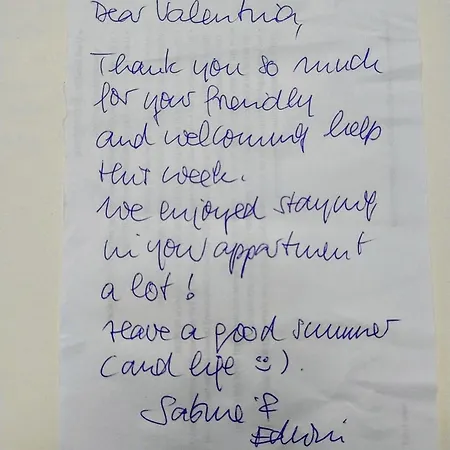 Dear Valentina,
Thank you so much
for your friendly
and welcoming help
this week.
We enjoyed staying
in your appartment
a lot!
Have a good summer
(and life ☺).
Sabine &